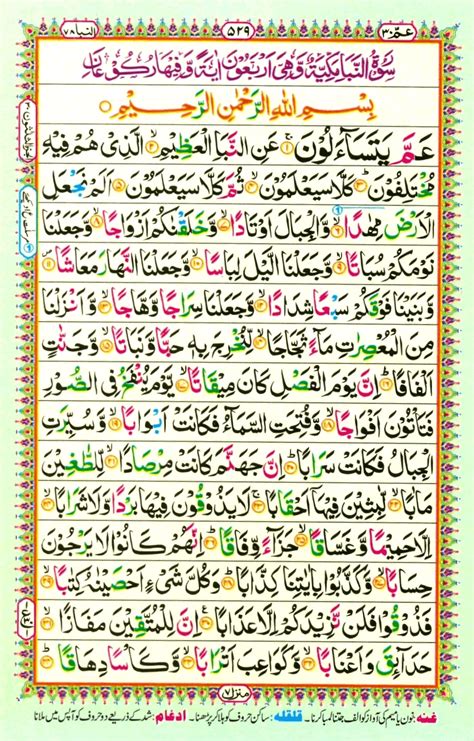 عَمَّ ٣٠
٥٢٩
النبا ٧٨
سُوْرَةُ النَّبَاِ مَكِّيَّةٌ وَّهِيَ اَرْبَعُوْنَ اٰيَةً وَّفِيْهَا رُكُوْعَانِ
بِسْمِ اللهِ الرَّحْمٰنِ الرَّحِيْمِ
عَمَّ يَتَسَآءَلُوْنَ ۚ﴿۱﴾ عَنِ النَّبَاِ الْعَظِيْمِ ۙ﴿۲﴾ الَّذِيْ هُمْ فِيْهِ
مُخْتَلِفُوْنَ ؕ﴿۳﴾ كَلَّا سَيَعْلَمُوْنَ ۙ﴿۴﴾ ثُمَّ كَلَّا سَيَعْلَمُوْنَ ﴿۵﴾ اَلَمْ نَجْعَلِ
الْاَرْضَ مِهٰدًا ۙ﴿۶﴾ وَّالْجِبَالَ اَوْتَادًا ﴿۷﴾ وَّخَلَقْنٰكُمْ اَزْوَاجًا ۙ﴿۸﴾ وَّجَعَلْنَا
نَوْمَكُمْ سُبَاتًا ۙ﴿۹﴾ وَّجَعَلْنَا الَّيْلَ لِبَاسًا ۙ﴿۱۰﴾ وَّجَعَلْنَا النَّهَارَ مَعَاشًا ﴿۱۱﴾
وَّبَنَيْنَا فَوْقَكُمْ سَبْعًا شِدَادًا ۙ﴿۱۲﴾ وَّجَعَلْنَا سِرَاجًا وَّهَّاجًا ﴿۱۳﴾ وَّاَنْزَلْنَا
مِنَ الْمُعْصِرٰتِ مَآءً ثَجَّاجًا ۙ﴿۱۴﴾ لِّنُخْرِجَ بِهٖ حَبًّا وَّنَبَاتًا ۙ﴿۱۵﴾ وَّجَنّٰتٍ
اَلْفَافًا ؕ﴿۱۶﴾ اِنَّ يَوْمَ الْفَصْلِ كَانَ مِيْقَاتًا ۙ﴿۱۷﴾ يَّوْمَ يُنْفَخُ فِي الصُّوْرِ
فَتَاْتُوْنَ اَفْوَاجًا ۙ﴿۱۸﴾ وَّفُتِحَتِ السَّمَآءُ فَكَانَتْ اَبْوَابًا ۙ﴿۱۹﴾ وَّسُيِّرَتِ
الْجِبَالُ فَكَانَتْ سَرَابًا ؕ﴿۲۰﴾ اِنَّ جَهَنَّمَ كَانَتْ مِرْصَادًا ۙ﴿۲۱﴾ لِّلطَّاغِيْنَ
مَاٰبًا ۙ﴿۲۲﴾ لّٰبِثِيْنَ فِيْهَاۤ اَحْقَابًا ۚ﴿۲۳﴾ لَا يَذُوْقُوْنَ فِيْهَا بَرْدًا وَّلَا شَرَابًا ۙ﴿۲۴﴾
اِلَّا حَمِيْمًا وَّغَسَّاقًا ۙ﴿۲۵﴾ جَزَآءً وِّفَاقًا ؕ﴿۲۶﴾ اِنَّهُمْ كَانُوْا لَا يَرْجُوْنَ
حِسَابًا ۙ﴿۲۷﴾ وَّكَذَّبُوْا بِاٰيٰتِنَا كِذَّابًا ؕ﴿۲۸﴾ وَكُلَّ شَيْءٍ اَحْصَيْنٰهُ كِتٰبًا ۙ﴿۲۹﴾
فَذُوْقُوْا فَلَنْ نَّزِيْدَكُمْ اِلَّا عَذَابًا ﴿۳۰﴾ اِنَّ لِلْمُتَّقِيْنَ مَفَازًا ۙ﴿۳۱﴾
حَدَآئِقَ وَاَعْنَابًا ۙ﴿۳۲﴾ وَّكَوَاعِبَ اَتْرَابًا ۙ﴿۳۳﴾ وَّكَاْسًا دِهَاقًا ؕ﴿۳۴﴾
منزل ٧
غنه: نون یا میم کی آواز کو الف جتنا لمبا کرنا۔ قلقله: ساکن حروف کو ہلا کر پڑھنا۔ ادغام: شد کے ذریعے دو حروف کو آپس میں ملانا